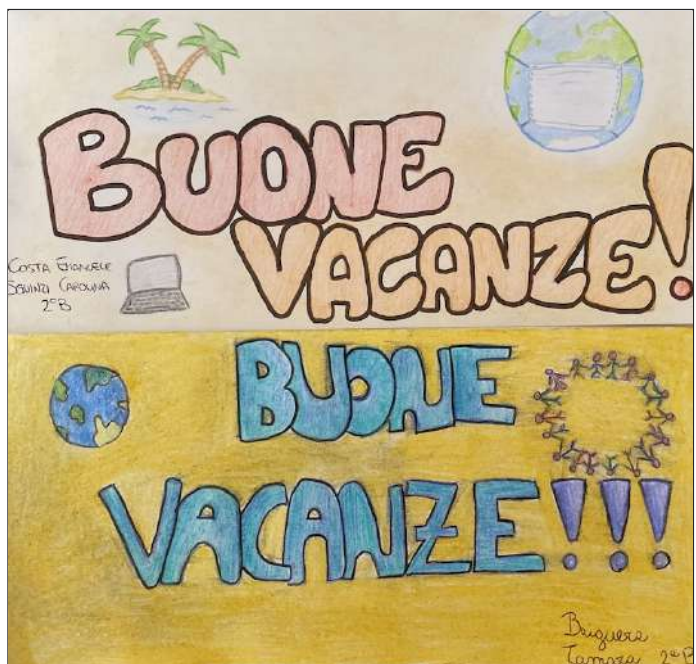 BUONE
VACANZE!
COSTA EMANUELE
SQUINZI CAROLINA
2°B
BUONE
VACANZE!!!
Tamara 2ªB